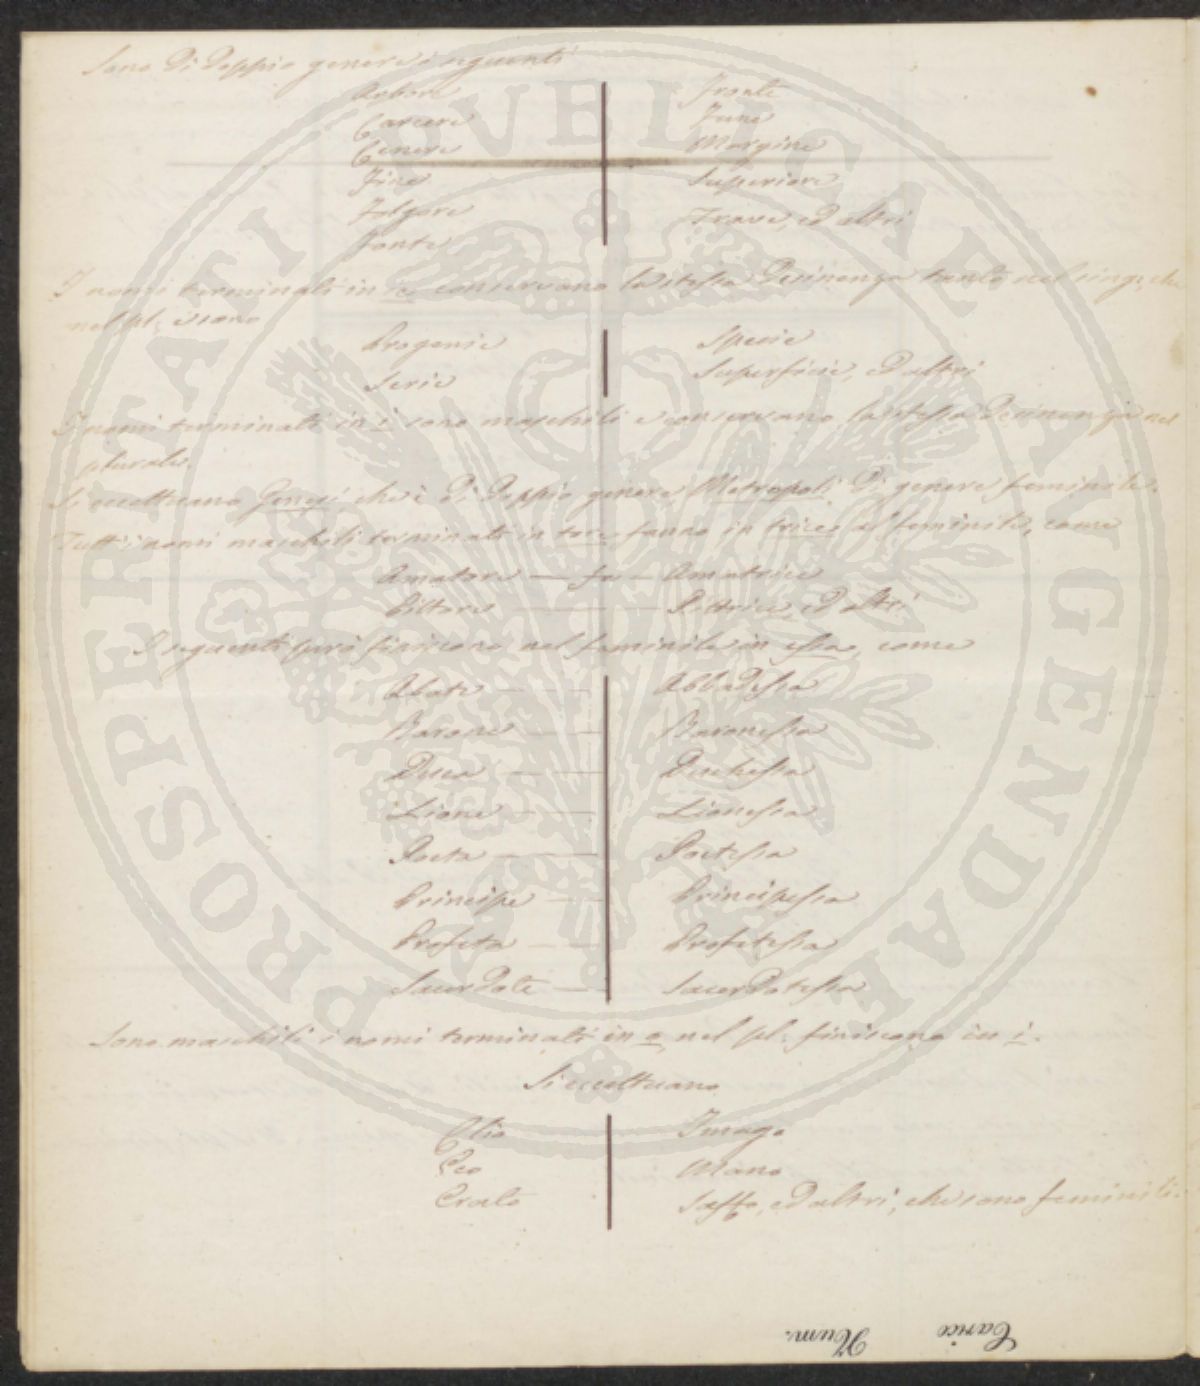 Sono di doppio genere i seguenti
Arbore Fronte
Carcere Fune
Cenere Margine
Fine Superiore
Folgore Trave, ed altri
Fonte
I nomi terminati in ie conservano la stessa desinenza tanto nel sing., che
nel pl: e sono
Progenie Specie
Serie Superficie, ed altri
I nomi terminati in i sono maschili e conservano la stessa desinenza nel
plurale.
Si eccettuano Genesi che è di doppio genere Metropoli di genere feminile.
Tutti i nomi maschili terminati in tore fanno in trice al feminile, come
Amatore — fa — Amatrice
Pittore — Pittrice, ed altri
I seguenti però finiscono nel feminile in essa, come
Abate — Abbadessa
Barone — Baronessa
Duca — Duchessa
Lione — Lionessa
Poeta — Poetessa
Principe — Principessa
Profeta — Profetessa
Sacerdote — Sacerdotessa
Sono maschili i nomi terminati in o nel pl: finiscono in i.
Si eccettuano
Clio Imago
Eco Mano
Erato Saffo, ed altri, che sono feminili.
Carico Num.
PROSPERITATI PUBLICAE AUGENDAE